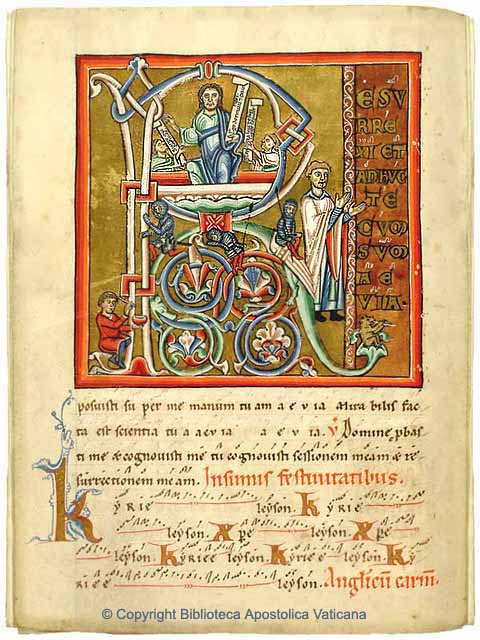 ESU
RRE
XI ET
ADHUC
TE
CUM
SUM
A E
VIA.
posuisti su per me manum tu am a e v ia mira bilis fac
ta est scientia tu a a e v ia a e v ia. V Domine pbas
ti me & cognovisti me tu cognovisti sessionem meam & re
surrectionem meam. In summis festivitatibus.
K
YRIE leyson. Kyrie
leyson. Xpe leyson. Xpe
leyson. Kyriee leyson. Kyriee leyson. Ky
riee leyson. Anglicu carm.
© Copyright Biblioteca Apostolica Vaticana